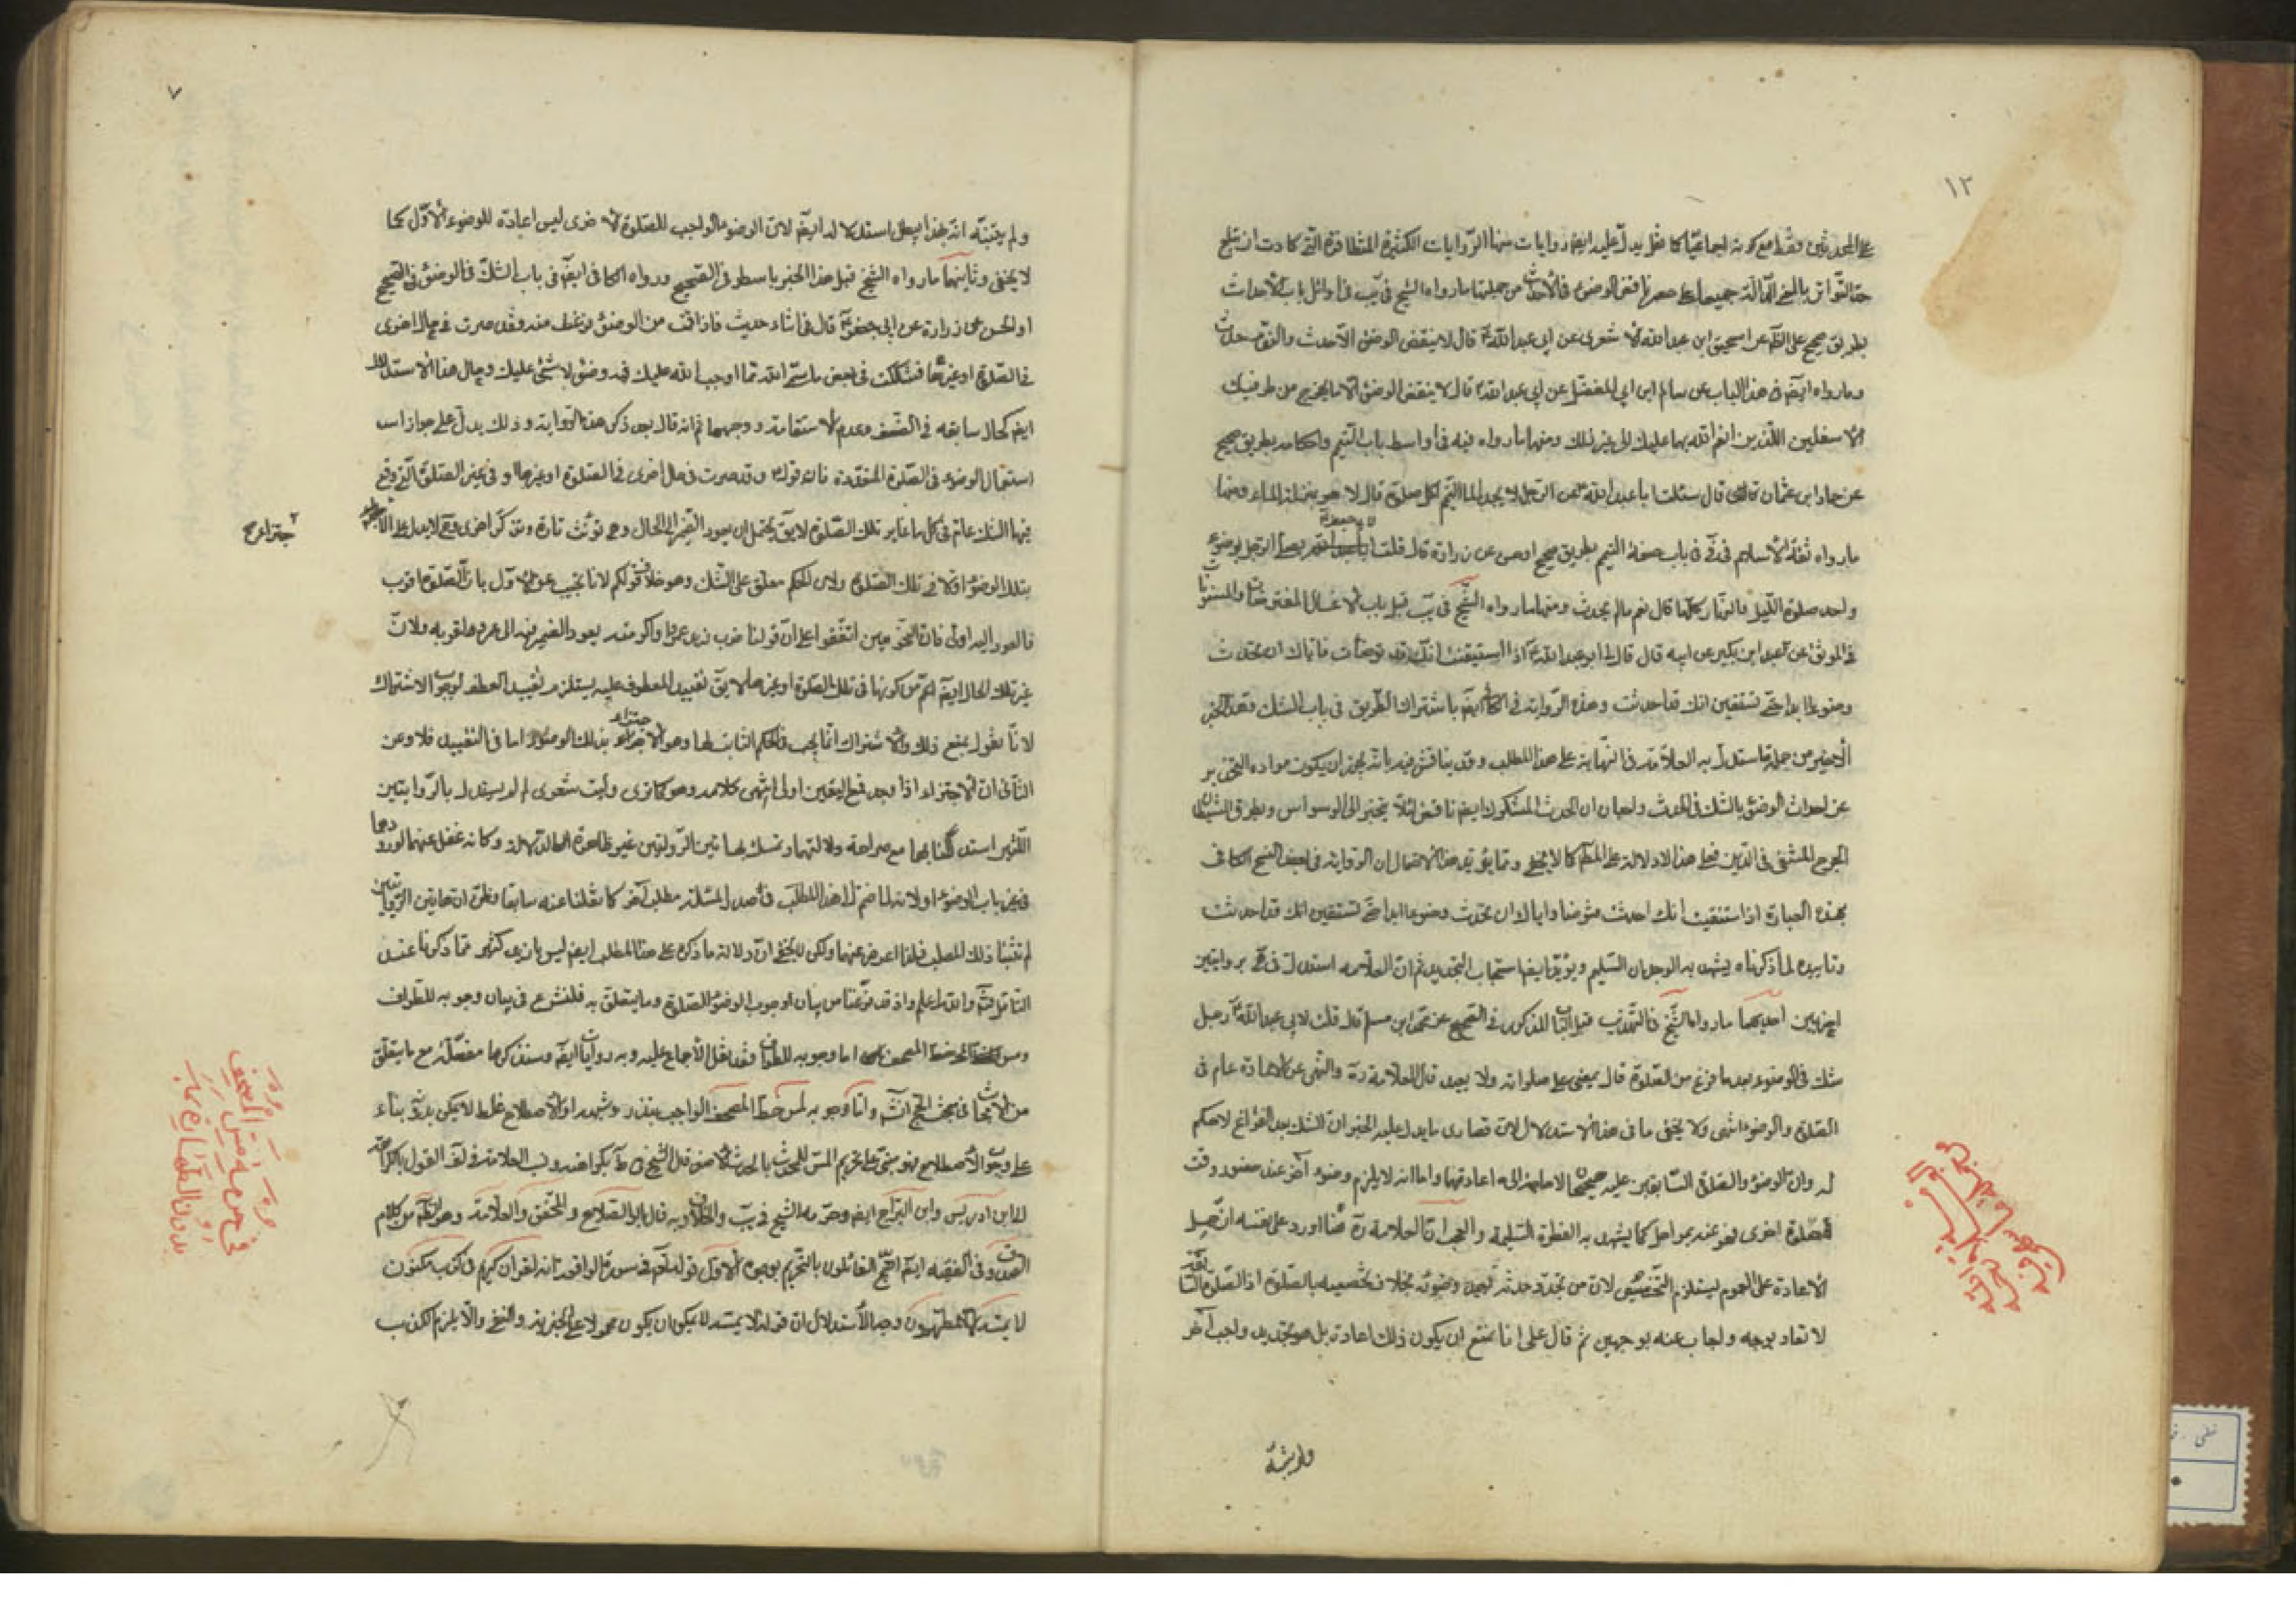 ١٢
على المحدثين فقط مع كونه اجماعيا كما نقل يدل عليه ايضا روايات منها الروايات الكثيرة المتظافرة التى كادت ان تبلغ
حد التواتر بالمعنى الدالة جميعا على حصر نواقض الوضوء فى الأحداث من جملتها ما رواه الشيخ فى يب فى اوائل باب الأحداث
بطريق صحيح على الظ عن اسحق ابن عبد الله الأشعرى عن ابى عبد الله ع قال لا ينقض الوضوء الا حدث والنوم حدث
وما رواه ايضا فى هذا الباب عن سالم ابى الفضل عن ابى عبد الله ع قال لا ينقض الوضوء الا ما يخرج من طرفيك
الأسفلين اللذين انعم الله بهما عليك الى غير ذلك ومنها ما رواه فيه فى اواسط باب التيمم واحكامه بطريق صحيح
عن حماد ابن عثمان قال سئلت ابا عبد الله ع عن الرجل لا يجد الماء ايتيمم لكل صلوة قال لا هو بمنزلة الماء ومنها
ما رواه ثقة الأسلام فى فى فى باب صفة التيمم بطريق صحيح او حسن عن زرارة قال قلت لابى جعفر ع يصلى الرجل بوضوء
واحد صلوة الليل والنهار كلها قال نعم ما لم يحدث ومنها ما رواه الشيخ فى يب قبل باب الأغسال المفترضات والمسنونات
فى الموثق عن عبد الله ابن بكير عن ابيه قال قال لى ابو عبد الله ع اذا استيقنت انك قد توضأت فاياك ان تحدث
وضوءا ابدا حتى تستيقن انك قد احدثت وهذه الرواية فى الكافى ايضا باشتراك الطريق فى باب الشك وهذا الخبر
الأخير من جملة ما استدل به العلامة فى النهاية على هذا المطلب وقد يناقش فيه بانه يجوز ان يكون مراده التحذير
عن احداث الوضوء بالشك فى الحدث واحتمال ان الحدث المشكوك ايضا ناقض لئلا ينجر الى الوسواس وتطرق الشيطان
الحرج المنفى فى الدين فعلى هذا لا دلالة على المط كما لا يخفى ومما يؤيد هذا الاحتمال ان الرواية فى بعض نسخ الكافى
بهذه العبارة اذا استيقنت انك احدثت فتوضأ واياك ان تحدث وضوءا ابدا حتى تستيقن انك قد احدثت
وتاييده لما ذكرناه يشهد به الوجدان السليم ويؤيد ايضا استحباب التجديد ثم ان العلامة استدل فى هى بروايتين
اخريين احديهما ما رواه الشيخ فى التهذيب قبل الباب المذكور فى الصحيح عن محمد ابن مسلم قال قلت لابى عبد الله ع رجل
شك فى الوضوء بعد ما فرغ من الصلوة قال يمضى على صلوته ولا يعيد قال العلامة ره والنهى عن الاعادة عام فى
الصلوة والوضوء انتهى ولا يخفى ما فى هذا الاستدلال لان قصارى ما يدل عليه الخبر ان الشك بعد الفراغ لا حكم
له وان الوضوء والصلوة السابقين عليه صحيحة لا حاجة الى اعادتهما واما انه لا يلزم وضوء آخر عند حضور وقت
لصلوة اخرى فهو عنه بمراحل كما يشهد به الفطرة السليمة والعجب ان العلامة ره هنا اورد على نفسه ان حمل
الأعادة على العموم يستلزم التخصيص لان من تجدد حدثه يعيد وضوئه بخلاف تخصيصه بالصلوة اذ الصلوة السابقة
لا تعاد بوجه واجاب عنه بوجهين ثم قال على انا نمنع ان يكون ذلك اعادة بل هو تجديد واجب آخر
ولم يتنبه
٧
ولم يتنبه انه بهذا يبطل استدلاله ايضا لان الوضوء الواجب للصلوة الأخرى ليس اعادة للوضوء الأول كما
لا يخفى وثانيتهما ما رواه الشيخ قبل هذا الخبر باسطر فى الصحيح ورواه الكافى ايضا فى باب الشك فى الوضوء فى الصحيح
او الحسن عن زرارة عن ابى جعفر ع قال فى اثناء حديث فاذا قمت من الوضوء وفرغت منه وقد صرت فى حال اخرى
فى الصلوة او غيرها فشككت فى بعض ما سمى الله مما اوجب الله عليك فيه وضوء لا شئ عليك وحال هذا الاستدلال
ايضا كحال سابقه فى الضعف وعدم الاستقامة ووجههما ثم انه قال بعد ذكر هذه الرواية وذلك يدل على جواز اس
استعمال الوضوء فى الصلوة المتعددة فان قوله وقد صرت فى حال اخرى فى الصلوة او غيرها او فى غير الصلوة التى وقع
فيها الشك عام فى كل ما غاير تلك الصلوة لا يق يحتمل ان يعود الضمير الى الحال وهى تؤنث تارة وتذكر اخرى وح لا يدل على
بتلك الوضوء الا فى تلك الصلوة ولان الحكم معلق على الشك وهو خلاف قولكم لانا نجيب عن الأول بان الصلوة اقرب
فالعود اليه اولى فان النحويين اتفقوا على ان قولنا ضرب زيد عمروا واكرمته يعود الضمير فيه الى عمرو لقربه ولان
غير تلك الحال ايضا اعم من كونها فى تلك الصلوة او غيرها لا يق تقييد المعطوف عليه يستلزم تقييد العطف لوجوب الاشتراك
لانا نقول نمنع ذلك والاشتراك انما يجب فى الحكم الثابت لهما وهو الاجتزاء بذلك الوضوء اما فى التقييد فلا وعن
الثانى ان الأجتزاء اذا وجد مع اليقين اولى انتهى كلامه وهو كما ترى وليت شعرى لم لم يستدل بالروايتين
اللتين استدللنا بهما مع صراحة دلالتهما وتمسك بهاتين الروايتين غير ظاهرة الدلالة وكانه غفل عنهما لورودهما
فى غير باب الوضوء او لانه لما ضم الى هذا المطلب فى صدر المسئلة مطلب آخر كما نقلنا عنه سابقا وظن ان هاتين الروايتين
لم تثبتا ذلك المطلب فلذا اعرض عنهما ولكن لا يخفى ان دلالة ما ذكره على هذا المطلب ايضا ليس بازيد كثير مما ذكرنا عند
التامل والله اعلم واذ قد فرغنا من بيان وجوب الوضوء للصلوة وما يتعلق به فلنشرع فى بيان وجوبه للطواف
ومس المصحف اما وجوبه للطواف فقد نقل الأجماع عليه وبه روايات ايضا وسنذكرها مفصلة مع ما يتعلق
من الأبحاث فى بحث الحج انش واما وجوبه لمس خط المصحف الواجب بنذر وشبهه او الأصطلاح غلط لا يمكن بدونه بناء
على وجوب الأصطلاح فهو مبنى على تحريم المس للمحدث بالحدث الأصغر قال الشيخ فى ط بكراهته ونسب العلامة فى لف القول بالكراهة
الى ابن ادريس وابن البراج ايضا وحرمه الشيخ فى يب والخلاف وبه قال ابو الصلاح والمحقق والعلامة وهو الظ من كلام
الصدوق فى الفقيه ايضا احتج القائلون بالتحريم بوجوه الأول قوله تع فى سورة الواقعة انه لقران كريم فى كتاب مكنون
لا يمسه الا المطهرون وجه الأستدلال ان قوله لا يمسه لا يمكن ان يكون محمولا على الخبرية والنفى والا يلزم الكذب